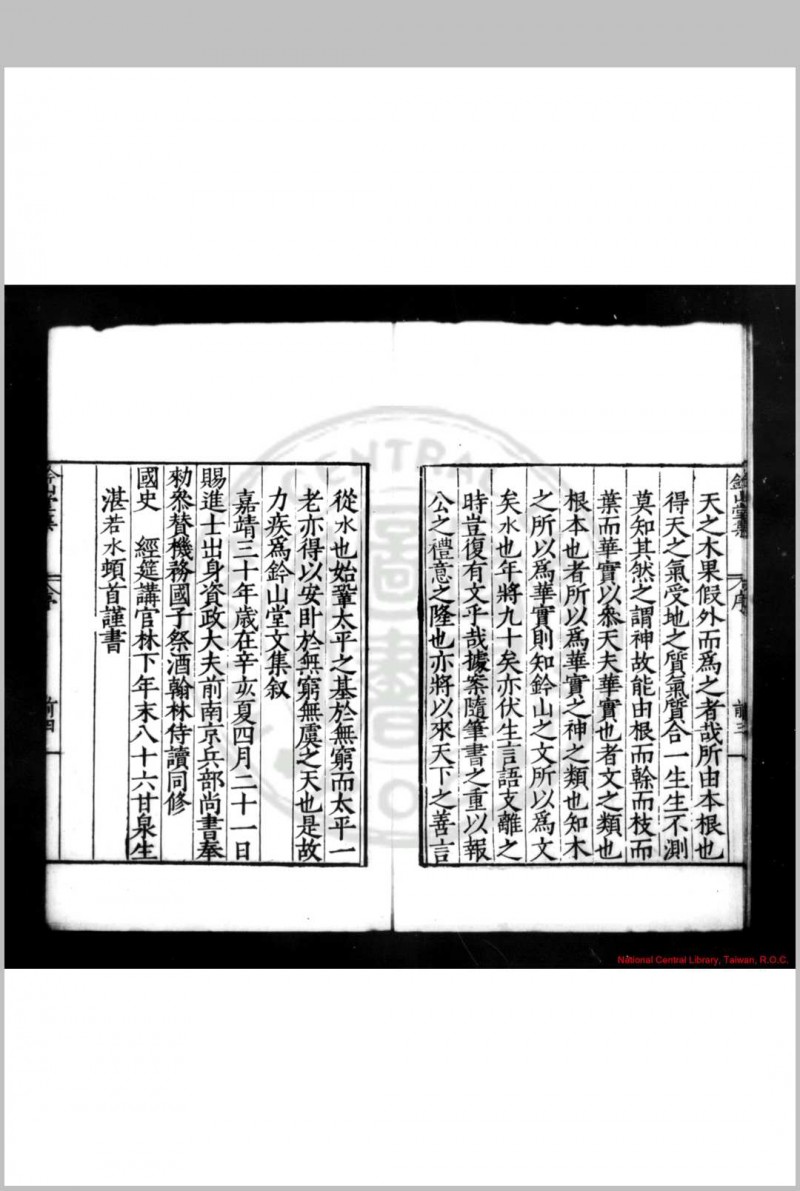 鈐山堂集
序
前三
天之木果假外而爲之者哉所由本根也
得天之氣受地之質氣質合一生生不測
莫知其然之謂神故能由根而榦而枝而
葉而華實以叅天夫華實也者文之類也
根本也者所以爲華實之神之類也知木
之所以爲華實則知鈐山之文所以爲文
矣水也年將九十矣亦伏生言語支離之
時豈復有文乎哉據案隨筆書之重以報
公之禮意之隆也亦將以來天下之善言
從水也始鞏太平之基於無窮而太平一
老亦得以安卧於無窮無虞之天也是故
力疾爲鈐山堂文集叙
嘉靖三十年歲在辛亥夏四月二十一日
賜進士出身資政大夫前南京兵部尚書奉
勑叅贊機務國子祭酒翰林侍讀同修
國史 經筵講官林下年末八十六甘泉生
湛若水頓首謹書
前四
CENTRAL
圖書
National Central Library, Taiwan, R.O.C.